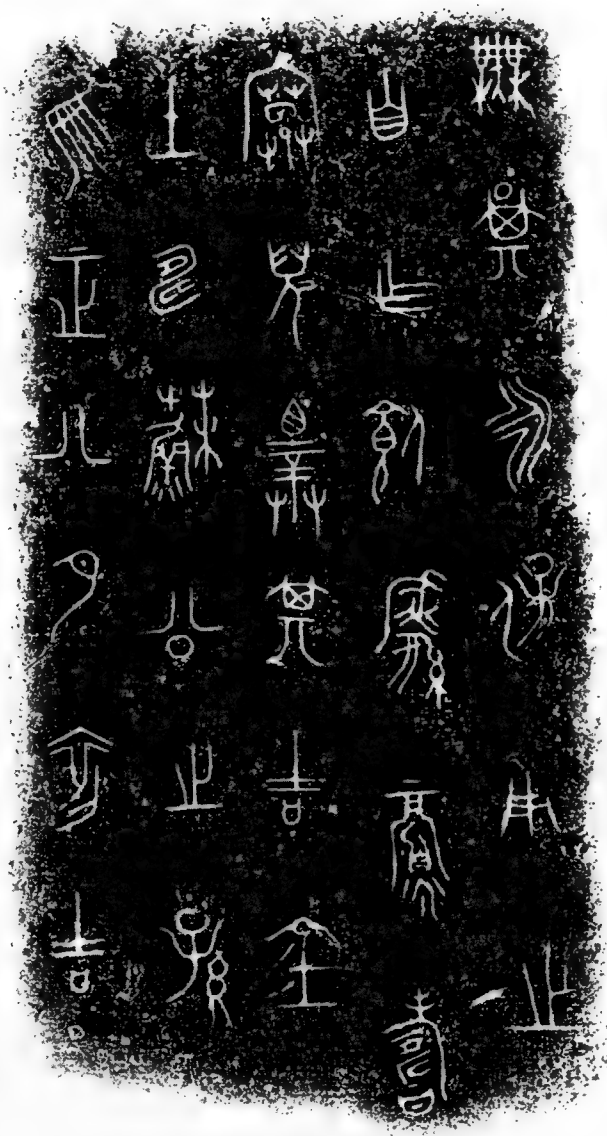 隹正八月初吉
壬申蘇公之孫
寬兒擇其吉金
自乍飤繁眉壽
無期永保用之